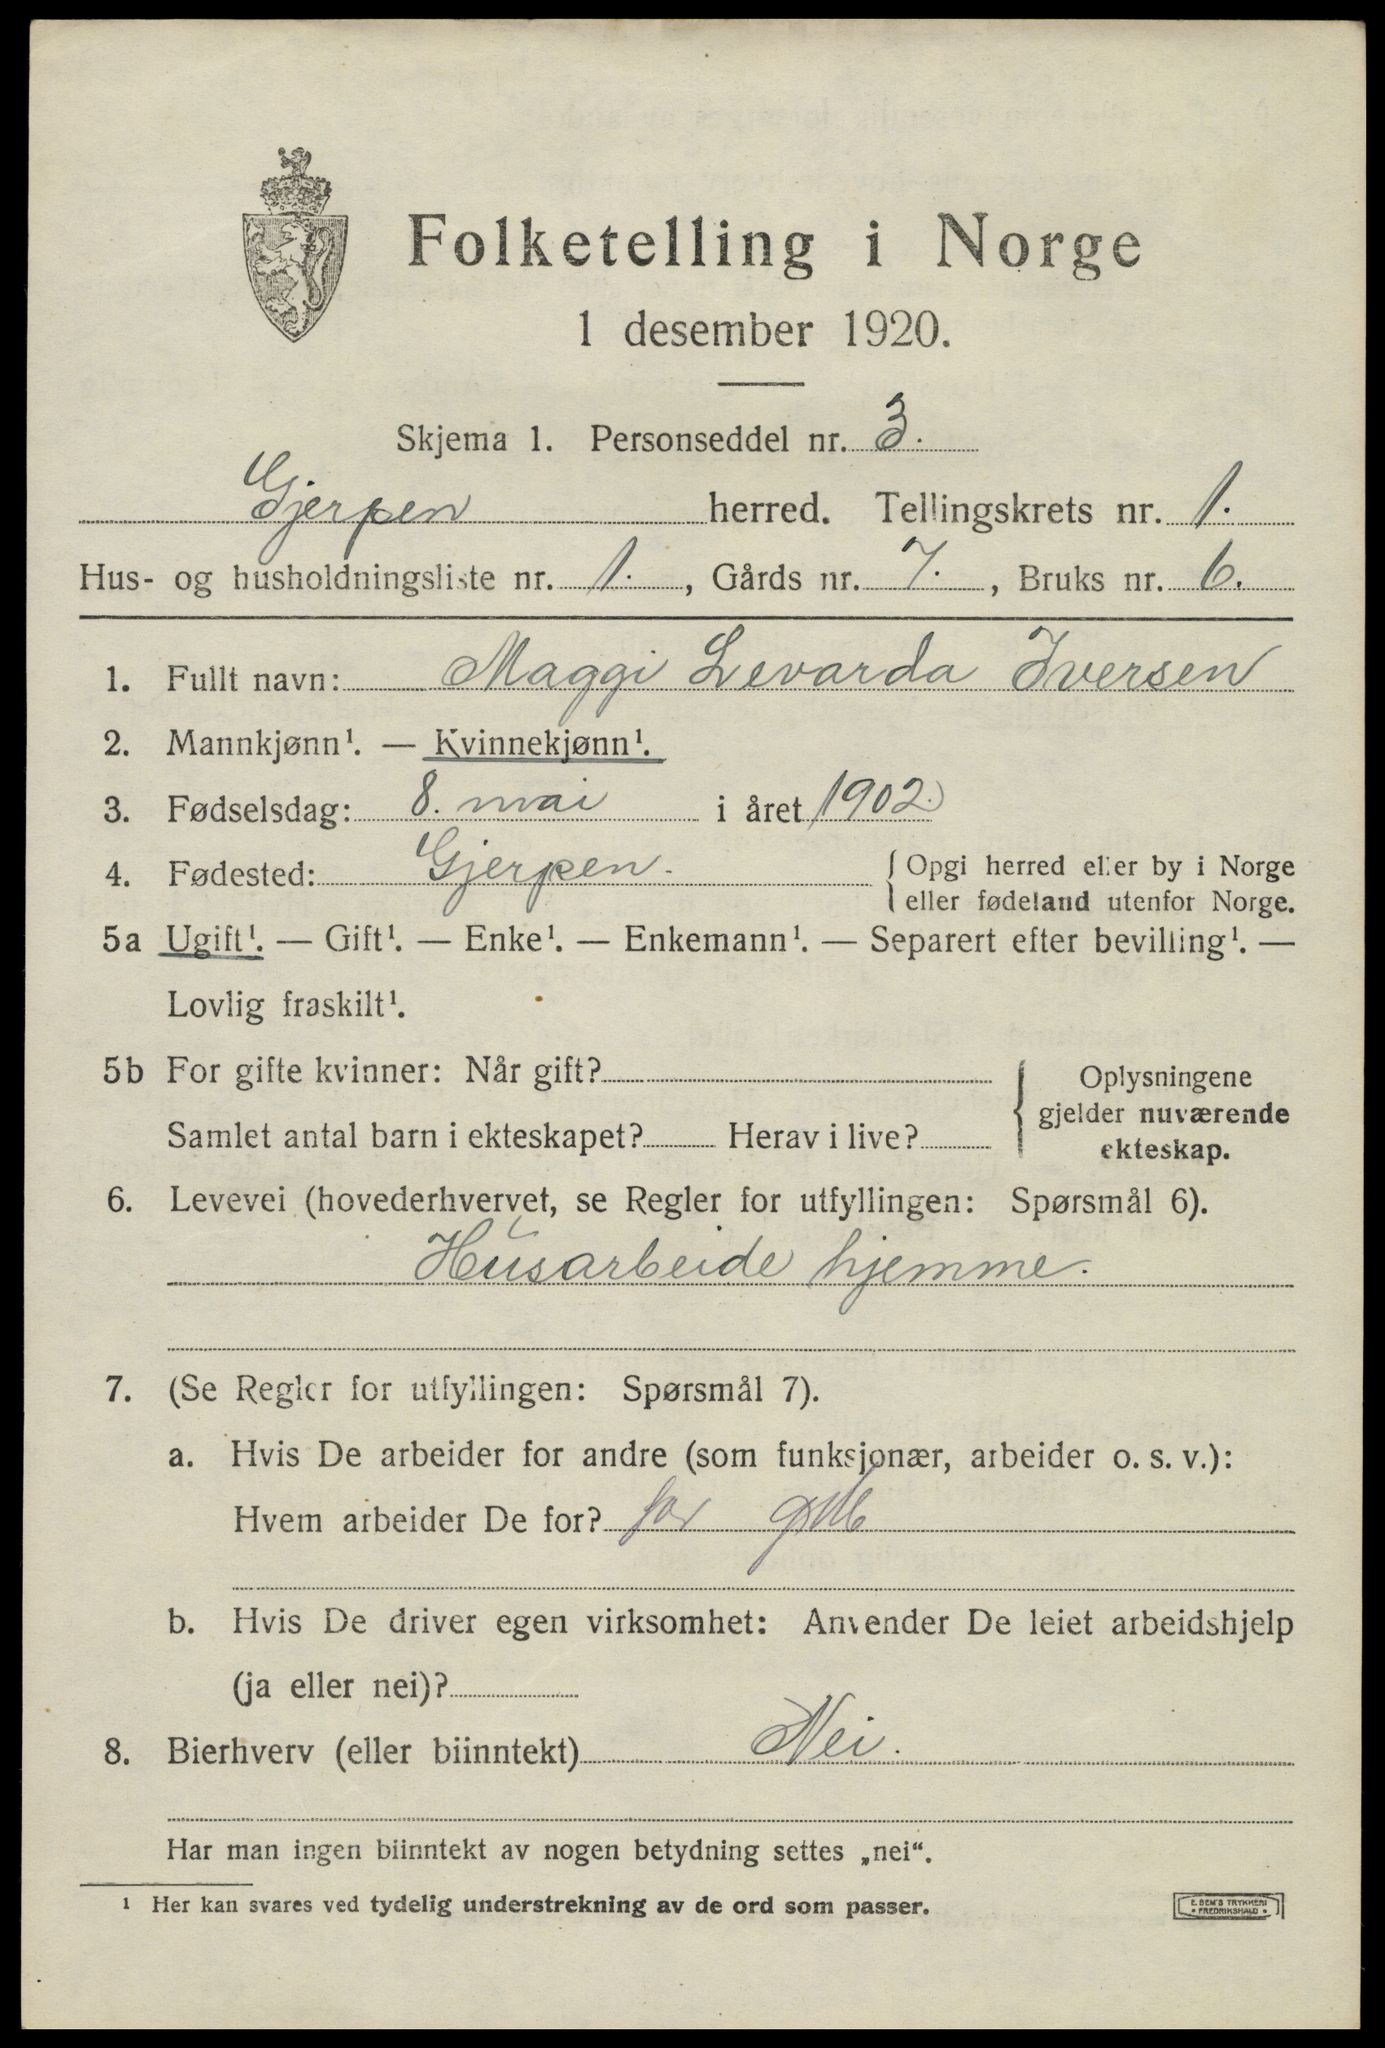 Folketelling i Norge
1 desember 1920.
Skjema 1. Personseddel nr. 3.
Gjerpen herred. Tellingskrets nr. 1.
Hus- og husholdningsliste nr. 1. , Gårds nr. 7. , Bruks nr. 6.
1. Fullt navn: Maggi Levarda Iversen
2. Mannkjønn¹. — Kvinnekjønn¹.
3. Fødselsdag: 8. mai i året 1902.
4. Fødested: Gjerpen. { Opgi herred eller by i Norge
eller fødeland utenfor Norge.
5a Ugift¹. — Gift¹. — Enke¹. — Enkemann¹. — Separert efter bevilling¹. —
Lovlig fraskilt¹.
5b For gifte kvinner: Når gift?
Samlet antal barn i ekteskapet? Herav i live?
{ Oplysningene
gjelder nuværende
ekteskap.
6. Levevei (hovederhvervet, se Regler for utfyllingen: Spørsmål 6).
Husarbeide hjemme.
7. (Se Regler for utfyllingen: Spørsmål 7).
a. Hvis De arbeider for andre (som funksjonær, arbeider o. s. v.):
Hvem arbeider De for? far
b. Hvis De driver egen virksomhet: Anvender De leiet arbeidshjelp
(ja eller nei)?
8. Bierhverv (eller biinntekt) Nei.
Har man ingen biinntekt av nogen betydning settes „nei“.
¹ Her kan svares ved tydelig understrekning av de ord som passer.
E. SEM'S TRYKKERI
• FREDRIKSHALD •